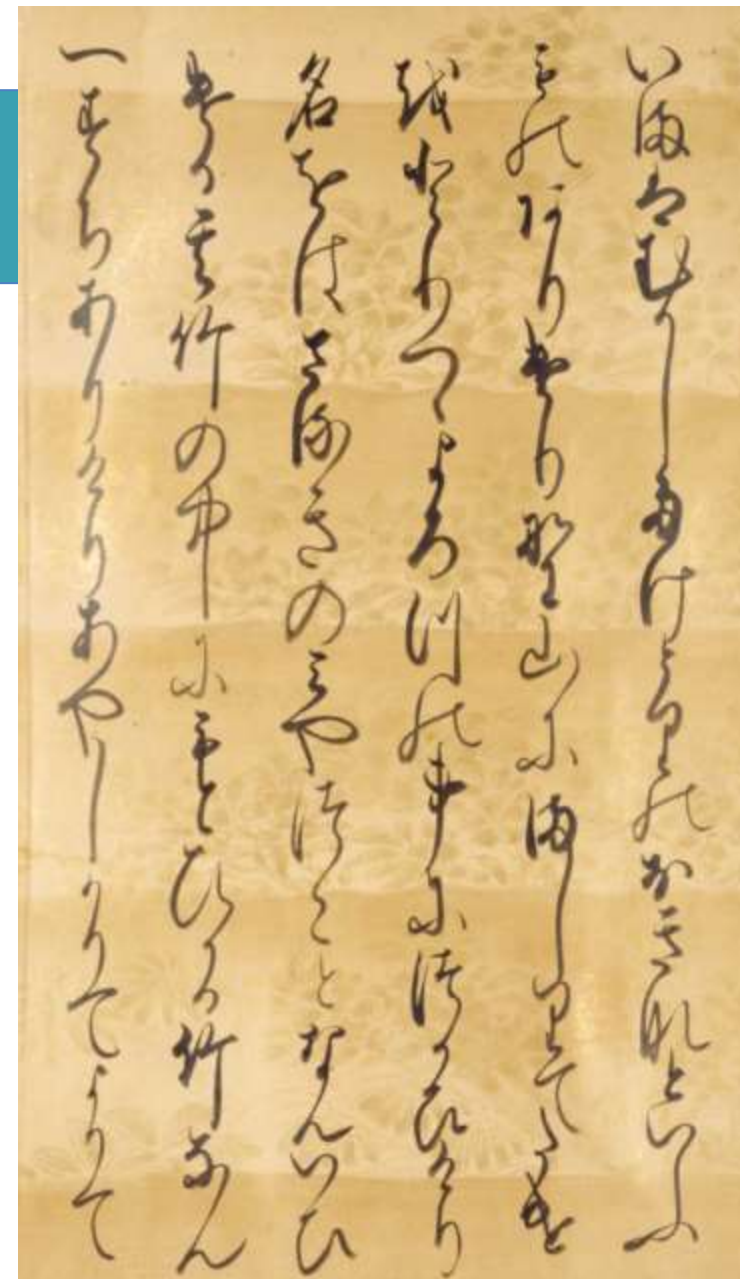 いまはむかしたけとりのおきなといふ
ものありけり野山にましりてたけ
をとりつゝよろつの事につかひけり
名をはさるきのみやつことなんいひ
ける其竹の中にもとひかる竹なん
一すちありけりあやしかりてよりて